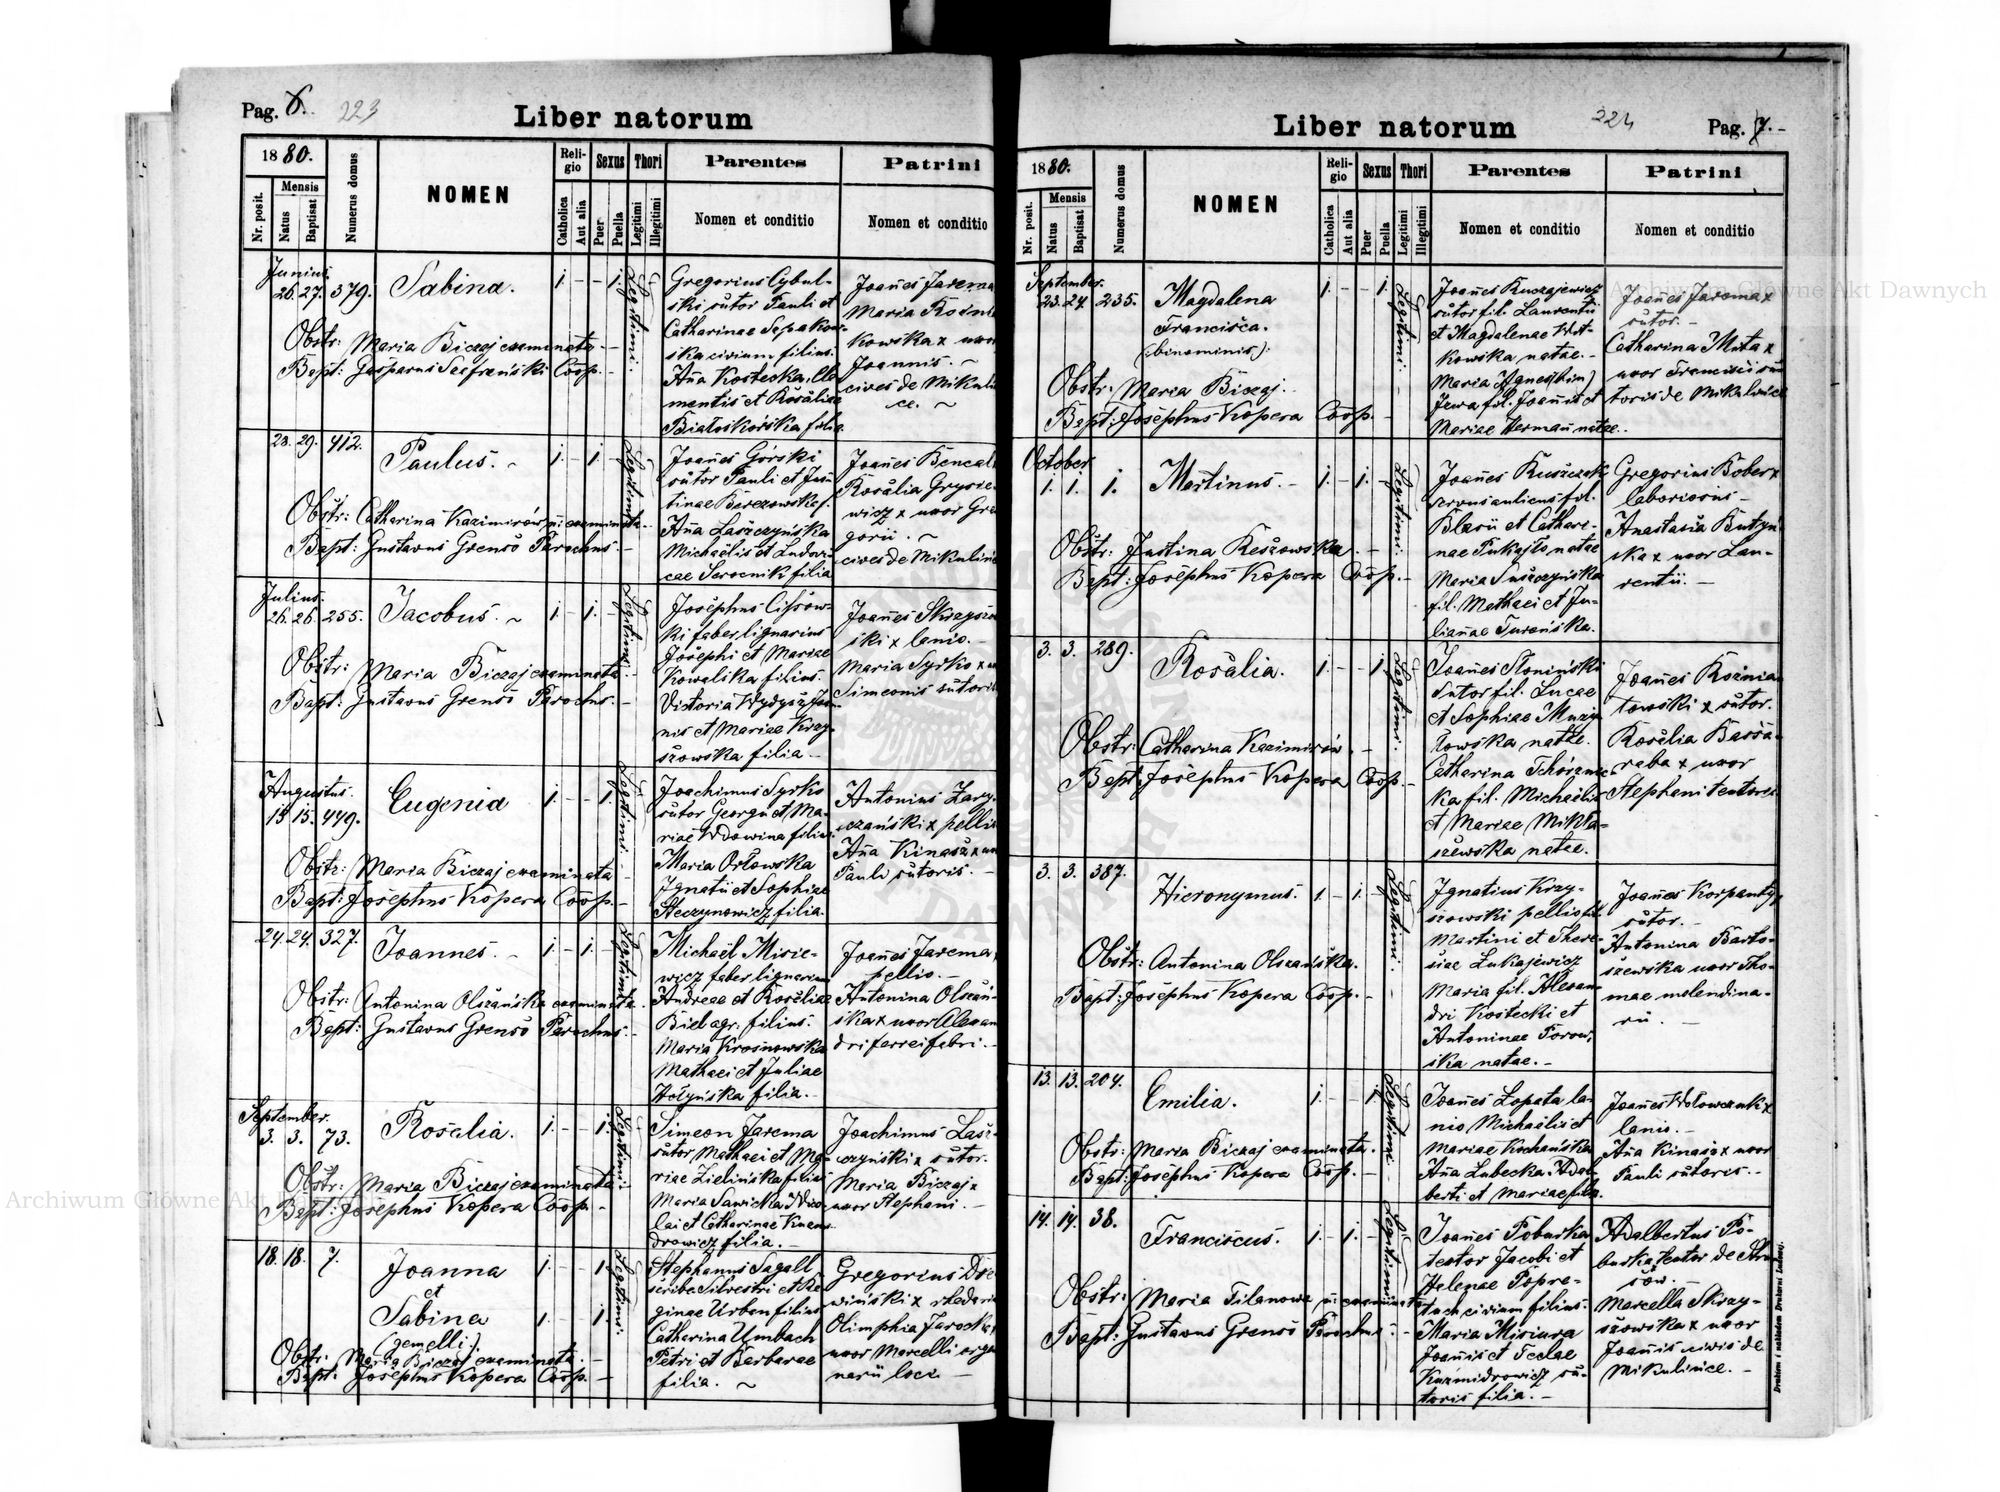 Pag. 6. 223
Liber natorum
1880.
Nr. posit.
Mensis
Natus
Baptisat
Numerus domus
NOMEN
Religio
Catholica
Aut alia
Sexus
Puer
Puella
Thori
Legitimi
Illegitimi
Parentes
Nomen et conditio
Patrini
Nomen et conditio
Junius.
26. 27. 379. Sabina. 1. - - 1. Legitimi.
Obstr: Maria Biczaj examinata
Bapt: Gasparus Coop.
Gregorius Cybul-
ski sutor Pauli et
Catharinae
civium filius.
Aña Kostecka Cle
mentis et Rosaliae
Białoskórska filia
Joañes Jarema
Maria
kowska x uxor
Joannis. ~
cives de Mikuli
ce. ~
28. 29. 412. Paulus. ~ 1. - 1. - Legitimi
Obstr: Catharina Kazimirów ñ examinata
Bapt: Gustavus Grensō Parochus. -
Joañes Górski
sutor Pauli et Jus
tinae Berezowskaj.
Aña Laszczyńska
Michaëlis et Ludovi
cae Serocnik filia
Joañes Bencal
Rosalia Grysie
wicz x uxor Gre
gorii. ~
cives de Mikulinc
Julius.
26. 26. 255. Jacobus. ~ 1. - 1. - Legitimi
Obstr: Maria Biczaj examinata
Bapt: Gustavus Grensō Parochus. -
Josephus Cissow-
ki faber lignarius
Josephi et Mariae
Kowalska filius.
Victoria Wydysz Joan
nis et Mariae Krzy-
szowska filia -
Joañes Skrzyszo
ski x lanio. -
Maria Syrko x u
Simeonis sutoris
Augustus.
15. 15. 449. Eugenia 1. - - 1. Legitimi
Obstr: Maria Biczaj examinata
Bapt: Josephus Kopera Coop. -
Joachimus Syrko
sutor Georgii et Ma-
riae Wdowina filius
Maria Orłowska
Ignatii et Sophiae
Steczynowicz filia
Antonius Zary-
czański x pellio
Aña Kinasz x ux
Pauli sutoris. -
24. 24. 327. Joannes. ~ 1. - 1. - Legitimi
Obstr: Antonina Olszańska examinata
Bapt: Gustavus Grensō Parochus. -
Michaël Misie-
wicz faber lignarius
Andreae et Rosaliae
Biel agr. filius.
Maria Krosnowska
Mathaei et Juliae
Hołyńska filia. -
Joañes Jarema x
pellio. -
Antonina Olszań-
ska x uxor Alexan
dri ferrei fabri. -
September.
3. 3. 73. Rosalia. 1. - - 1. Legitimi
Obstr: Maria Biczaj examinata
Bapt: Josephus Kopera Coop. -
Simeon Jarema
sutor Mathaei et Ma
riae Zielińska filius
Maria Sawicka Nico
lai et Catharinae
drowicz filia. -
Joachimus Lasz-
czyński x sutor.
Maria Biczaj x
uxor Stephani. -
18. 18. 7. Joanna 1. - - 1. Legitimi
et
Sabina 1. - - 1.
(gemelli).
Obstr: Maria Biczaj examinata. -
Bapt: Josephus Kopera Coop. -
Stephanus Sagall
scriba Silvestri et Re
ginae Urban filius
Catharina Umbach
Petri et Barbarae
filia. ~
Gregorius
wiński x rhedarius
Olimphia Jarocka x
uxor Marcelli orga
narii loci. -
Liber natorum
224 Pag. 7. -
1880.
Nr. posit.
Mensis
Natus
Baptisat
Numerus domus
NOMEN
Religio
Catholica
Aut alia
Sexus
Puer
Puella
Thori
Legitimi
Illegitimi
Parentes
Nomen et conditio
Patrini
Nomen et conditio
September.
23. 24. 235. Magdalena 1. - - 1. Legitimi
Francisca.
(binominis).
Obstr: Maria Biczaj.
Bapt: Josephus Kopera Coop. -
Joañes Kuczajewicz
sutor fil. Laurentii
et Magdalenae Wit-
kowska natae. -
Maria Agnes (bin)
Jewa fil. Joañis et
Mariae Hermañ natae.
Joañes Jaroma x
sutor. -
Catharina Muta x
uxor Francisci su
toris de Mikulince
October
1. 1. 1. Martinus. - 1. - 1. - Legitimi
Obstr: Justina Reszowska. -
Bapt: Josephus Kopera Coop. -
Joañes Kuszczak
servus aulicus fil.
Blasii et Cathari-
nae Pukajło natae
Maria Suszczyńska
fil. Mathaei et Ju-
lianae Turańska.
Gregorius Bober x
laboriosus -
Anastasia Butyń
ska x uxor Lau-
rentii. -
3. 3. 289. Rosalia. 1. - - 1. Legitimi
Obstr: Catharina Kazimirów. -
Bapt: Josephus Kopera Coop. -
Joañes Słoniński
sutor fil. Lucae
et Sophiae Muzy
łowska natae.
Catharina Tchórzews
ka fil. Michaëlis
et Mariae Mikła-
szewska natae.
Joañes Koźnia
towski x sutor.
Rosalia Bassa-
raba x uxor
Stephani textoris
3. 3. 387. Hieronymus. 1. - 1. - Legitimi
Obstr: Antonina Olszańska.
Bapt: Josephus Kopera Coop. -
Ignatius Krzy-
szowski pellio fil.
Martini et There-
siae Łukajewicz
Maria fil. Alexan
dri Kostecki et
Antoninae Torow,
ska natae. -
Joañes Korpanty x
sutor. -
Antonina Barto-
szewska uxor Tho-
mae molendina-
rii. -
13. 13. 204. Emilia. 1. - - 1. Legitimi
Obstr: Maria Biczaj examinata.
Bapt: Josephus Kopera Coop. -
Joañes Łopata la-
nio Michaëlis et
Mariae Kochańska
Aña Lubecka Adal-
berti et Mariae filia.
Joañes Wołowczuk x
lanio. -
Aña Kinasz x uxor
Pauli sutoris. -
14. 14. 38. Franciscus. 1. - 1. - Legitimi
Obstr: Maria Tilanowa ñ examinata
Bapt: Gustavus Grensō Parochus. -
Joañes Poburka
textor Jacobi et
Helenae Popre-
tuch civium filius.
Maria Misiura
Joañis et Teclae
Kazmidrowicz su-
toris filia. -
Adalbertus Po-
burka textor de Stru
sow. -
Marcella Skrzy-
szowska x uxor
Joañis civis de
Mikulince. -
Drukiem i nakładem Drukarni Ludowej.
Archiwum Główne Akt Dawnych
Archiwum Główne Akt Dawnych